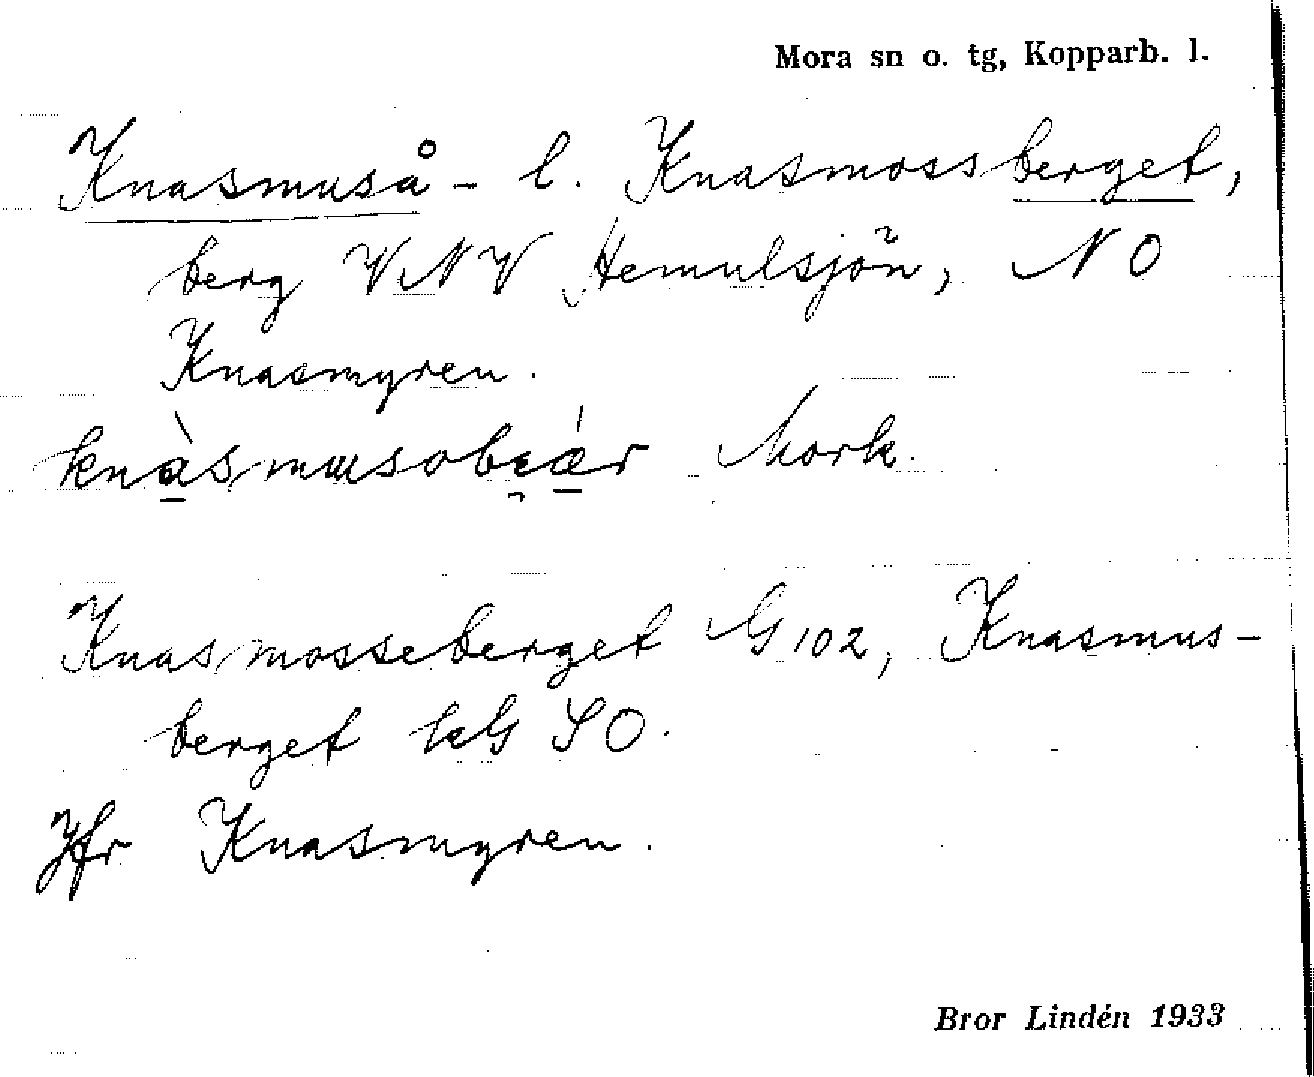 Mora sn o. tg, Kopparb. l.
Knasmuså- l. Knasmossberget,
berg VNV Hemulsjön, NO
Knasmyren.
knàsmusobɛár Mork.
Knasmosseberget G102, Knasmus-
berget kG SO.
Jfr Knasmyren.
Bror Lindén 1933